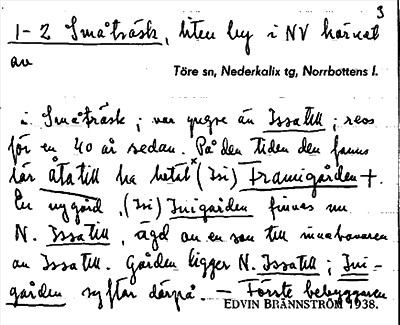 3
1-2 Småträsk, liten by i NV hörnet
av
Töre sn, Nederkalix tg, Norrbottens l.
i Småträsk; var yngre än Issatill; revs
för en 40 år sedan. På den tiden den fanns
lär åtatill ha hetat (Isi) Framigården +.
En nygård, (Isi) Inigården finnes nu
N. Issatill, ägd av en son till innehavaren
av Issatill. Gården ligger N. Issatill; Ini-
gården syftar därpå. — Förste bebyggaren
EDVIN BRÄNNSTRÖM 1938.